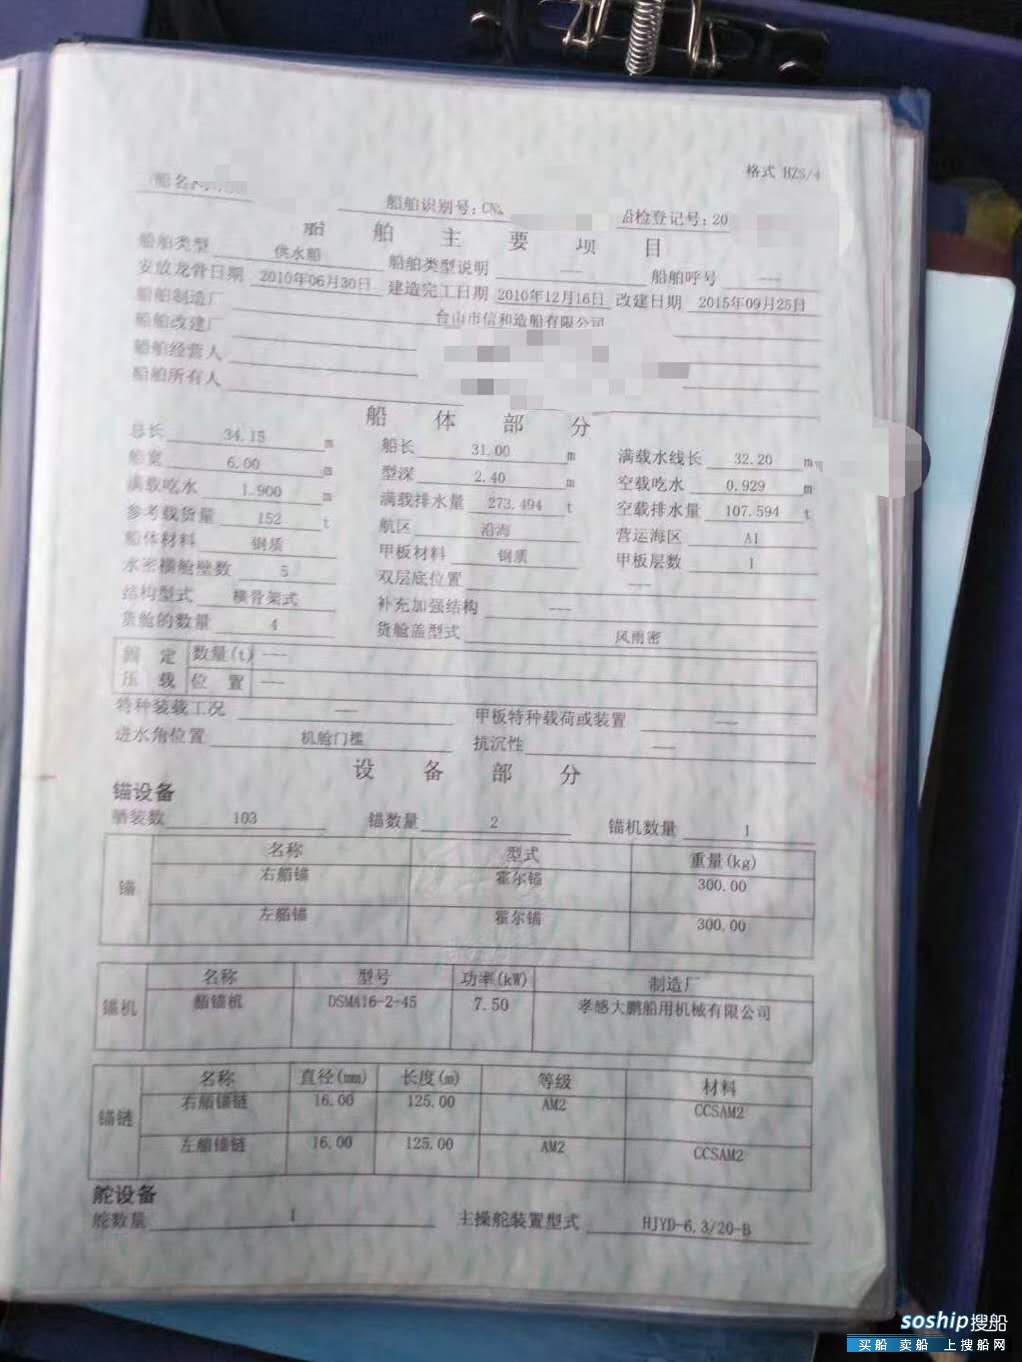 格式 HZS/4
船名
船舶识别号:CN 船检登记号:20
船 舶 主 要 项 目
船舶类型 供水船 船舶类型说明 --- 船舶呼号 ---
安放龙骨日期 2010年06月30日 建造完工日期 2010年12月16日 改建日期 2015年09月25日
船舶制造厂 台山市信和造船有限公司
船舶改建厂
船舶经营人
船舶所有人
船 体 部 分
总长 34.15 m 船长 31.00 m 满载水线长 32.20 m
船宽 6.00 m 型深 2.40 m 空载吃水 0.929 m
满载吃水 1.900 m 满载排水量 273.494 t 空载排水量 107.594 t
参考载货量 152 t 航区 沿海 营运海区 A1
船体材料 钢质 甲板材料 钢质 甲板层数 1
水密横舱壁数 5 双层底位置 ---
结构型式 横骨架式 补充加强结构 ---
货舱的数量 4 货舱盖型式 风雨密
固 定 数量(t) ---
压 载 位 置 ---
特种装载工况 --- 甲板特种载荷或装置 ---
进水角位置 机舱门槛 抗沉性 ---
设 备 部 分
锚设备
舾装数 103 锚数量 2 锚机数量 1
锚 名称 型式 重量(kg)
右艏锚 霍尔锚 300.00
左艏锚 霍尔锚 300.00
锚机 名称 型号 功率(kW) 制造厂
艏锚机 DSMA16-2-45 7.50 孝感大鹏船用机械有限公司
锚链 名称 直径(mm) 长度(m) 等级 材料
右艏锚链 16.00 125.00 AM2 CCSAM2
左艏锚链 16.00 125.00 AM2 CCSAM2
舵设备
舵数量 1 主操舵装置型式 HJYD-6.3/20-B
soship搜船
买船 卖船 上搜船网